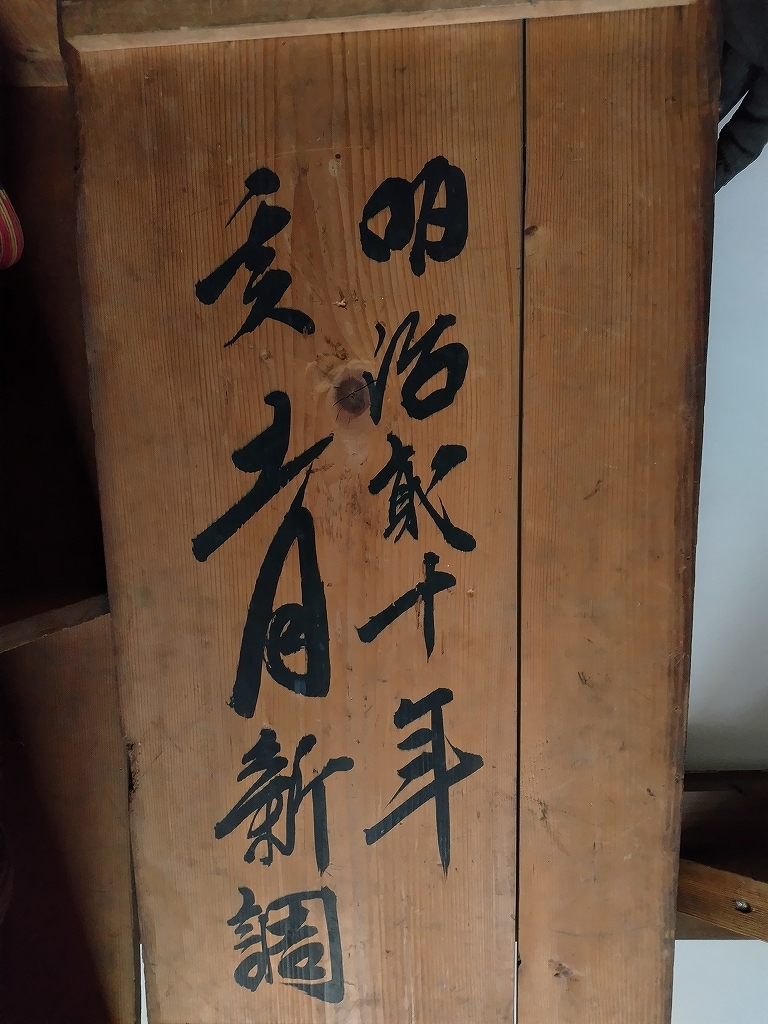 明治貳十年
亥五月新調